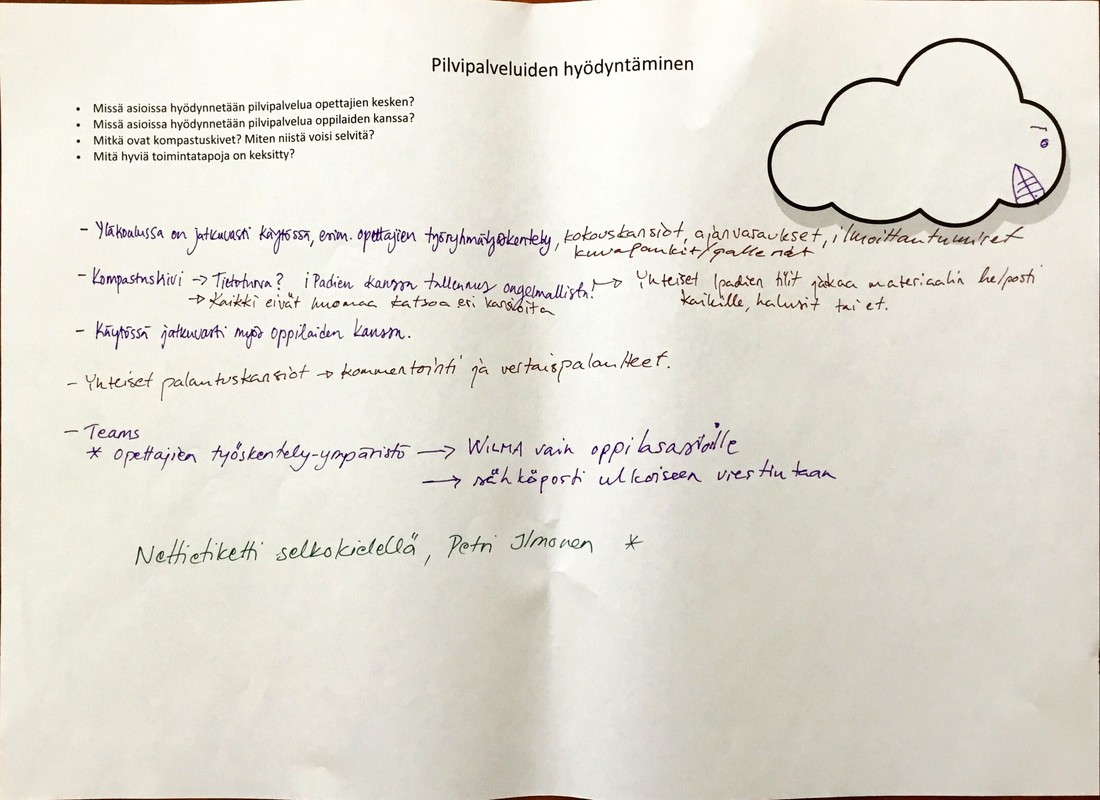 Pilvipalveluiden hyödyntäminen
• Missä asioissa hyödynnetään pilvipalvelua opettajien kesken?
• Missä asioissa hyödynnetään pilvipalvelua oppilaiden kanssa?
• Mitkä ovat kompastuskivet? Miten niistä voisi selvitä?
• Mitä hyviä toimintatapoja on keksitty?
- Yläkoulussa on jatkuvasti käytössä, esim. opettajien työryhmätyöskentely, kokouskansiot, ajanvaraukset, ilmoittautumiset
kuvapankit/galleriat
- Kompastuskivi → Tietoturva? iPadien kanssa tallennus ongelmallista! → Yhteiset Ipadien tilit jakaa materiaalin helposti
→ Kaikki eivät huomaa katsoa eri kansioita kaikille, halusit tai et.
- Käytössä jatkuvasti myös oppilaiden kanssa.
- Yhteiset palautuskansiot → kommentointi ja vertaispalautteet.
- Teams
* opettajien työskentely-ympäristö → WILMA vain oppilasasioille
→ sähköposti ulkoiseen viestintään
Nettietiketti selkokielellä, Petri Ilmonen *